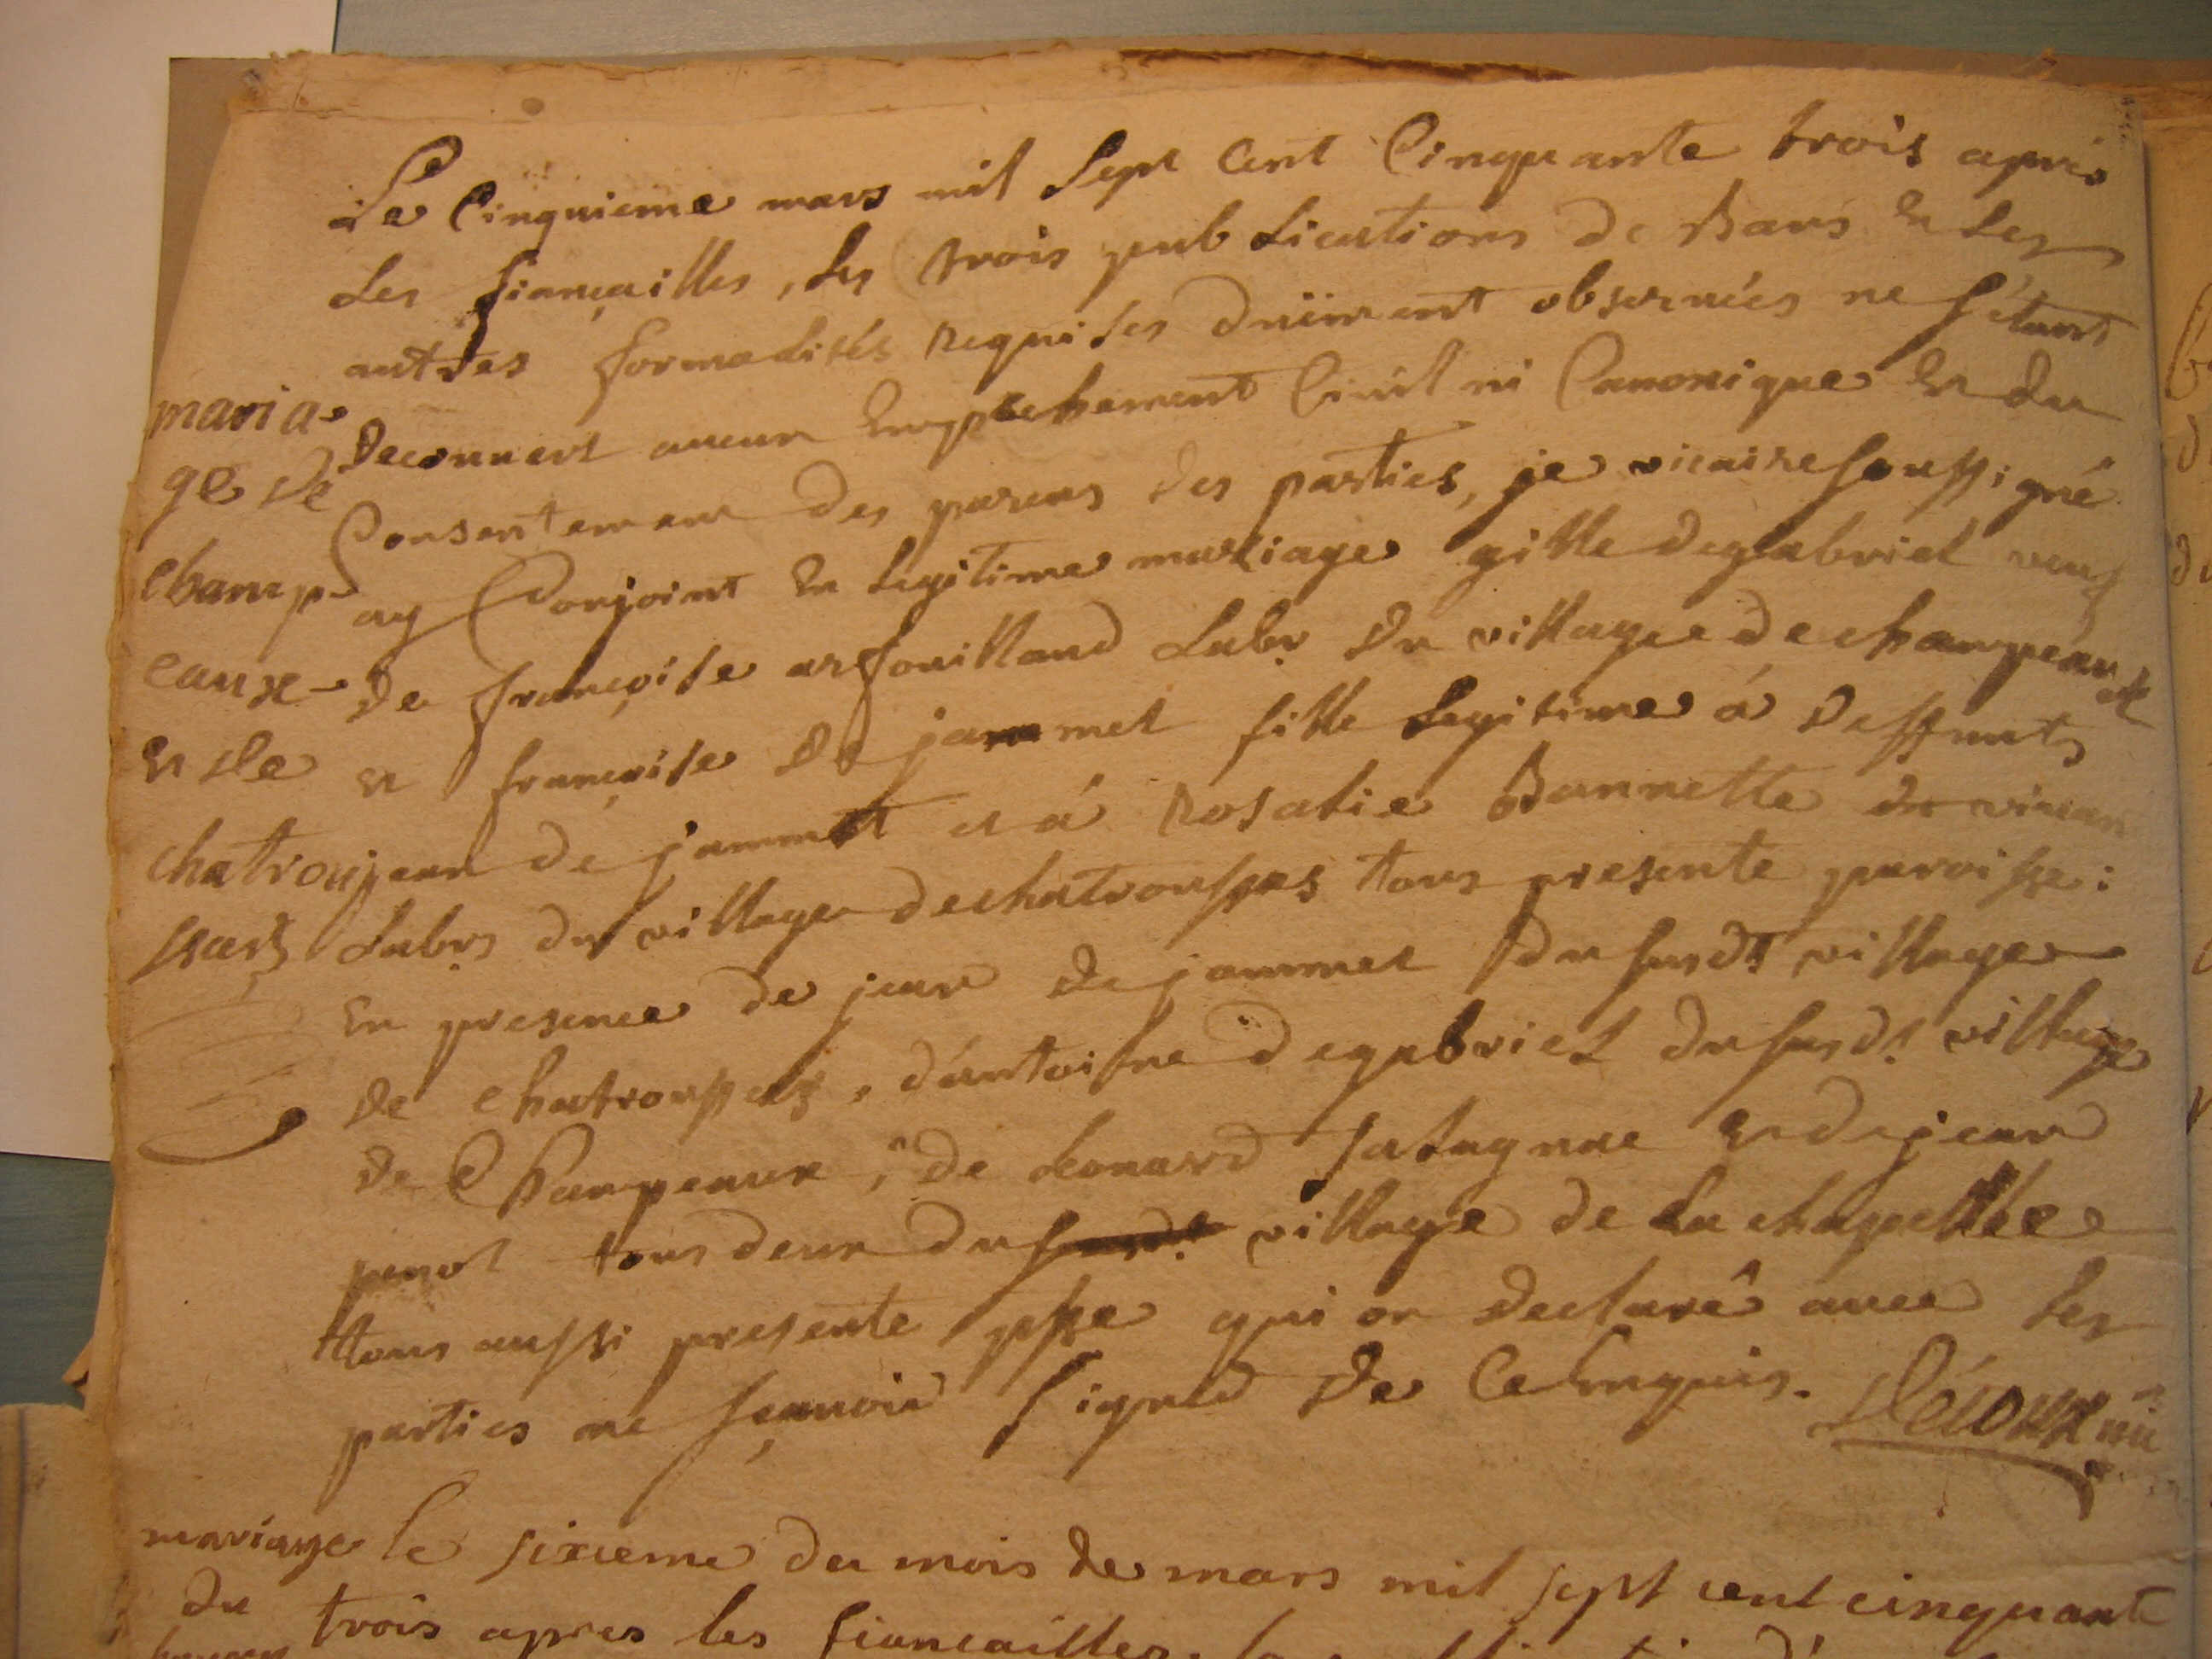 Le Cinquieme mars mil Sept Cent Cinquante trois après
Les fiançailles, Les trois publications de Bans et Les
autres formalités requises düement observées ne s'étant
Decouvert aucun Empechement Civil ni Canonique et du
Consentement des parens des parties, je vicaire soussigné
ay Conjoint En Legitime mariage gille degabriel veuf
de françoise arfouilland Labr. du village de champeaux
et françoise de jammet fille Legitime á deffunts
jean de jammet et á Rosalie Bannette du vivan
Labrs du village de chatroussas tous presente paroisse:
En presence de jean de jammet du susdt village
de chatroussas, d'antoisne degabriel du susdt. village
de Champeaux, de Leonard salagnac et de jean
penot tous deux du village de La chapelle
tous aussi presente psse qui on declaré avec Les
parties ne sçavoir signer de Ce Enquis.
mariage de champeaux et de chatroussas
mariage du
le sixieme du mois de mars mil sept cent cinquante
trois apres les fiancailles